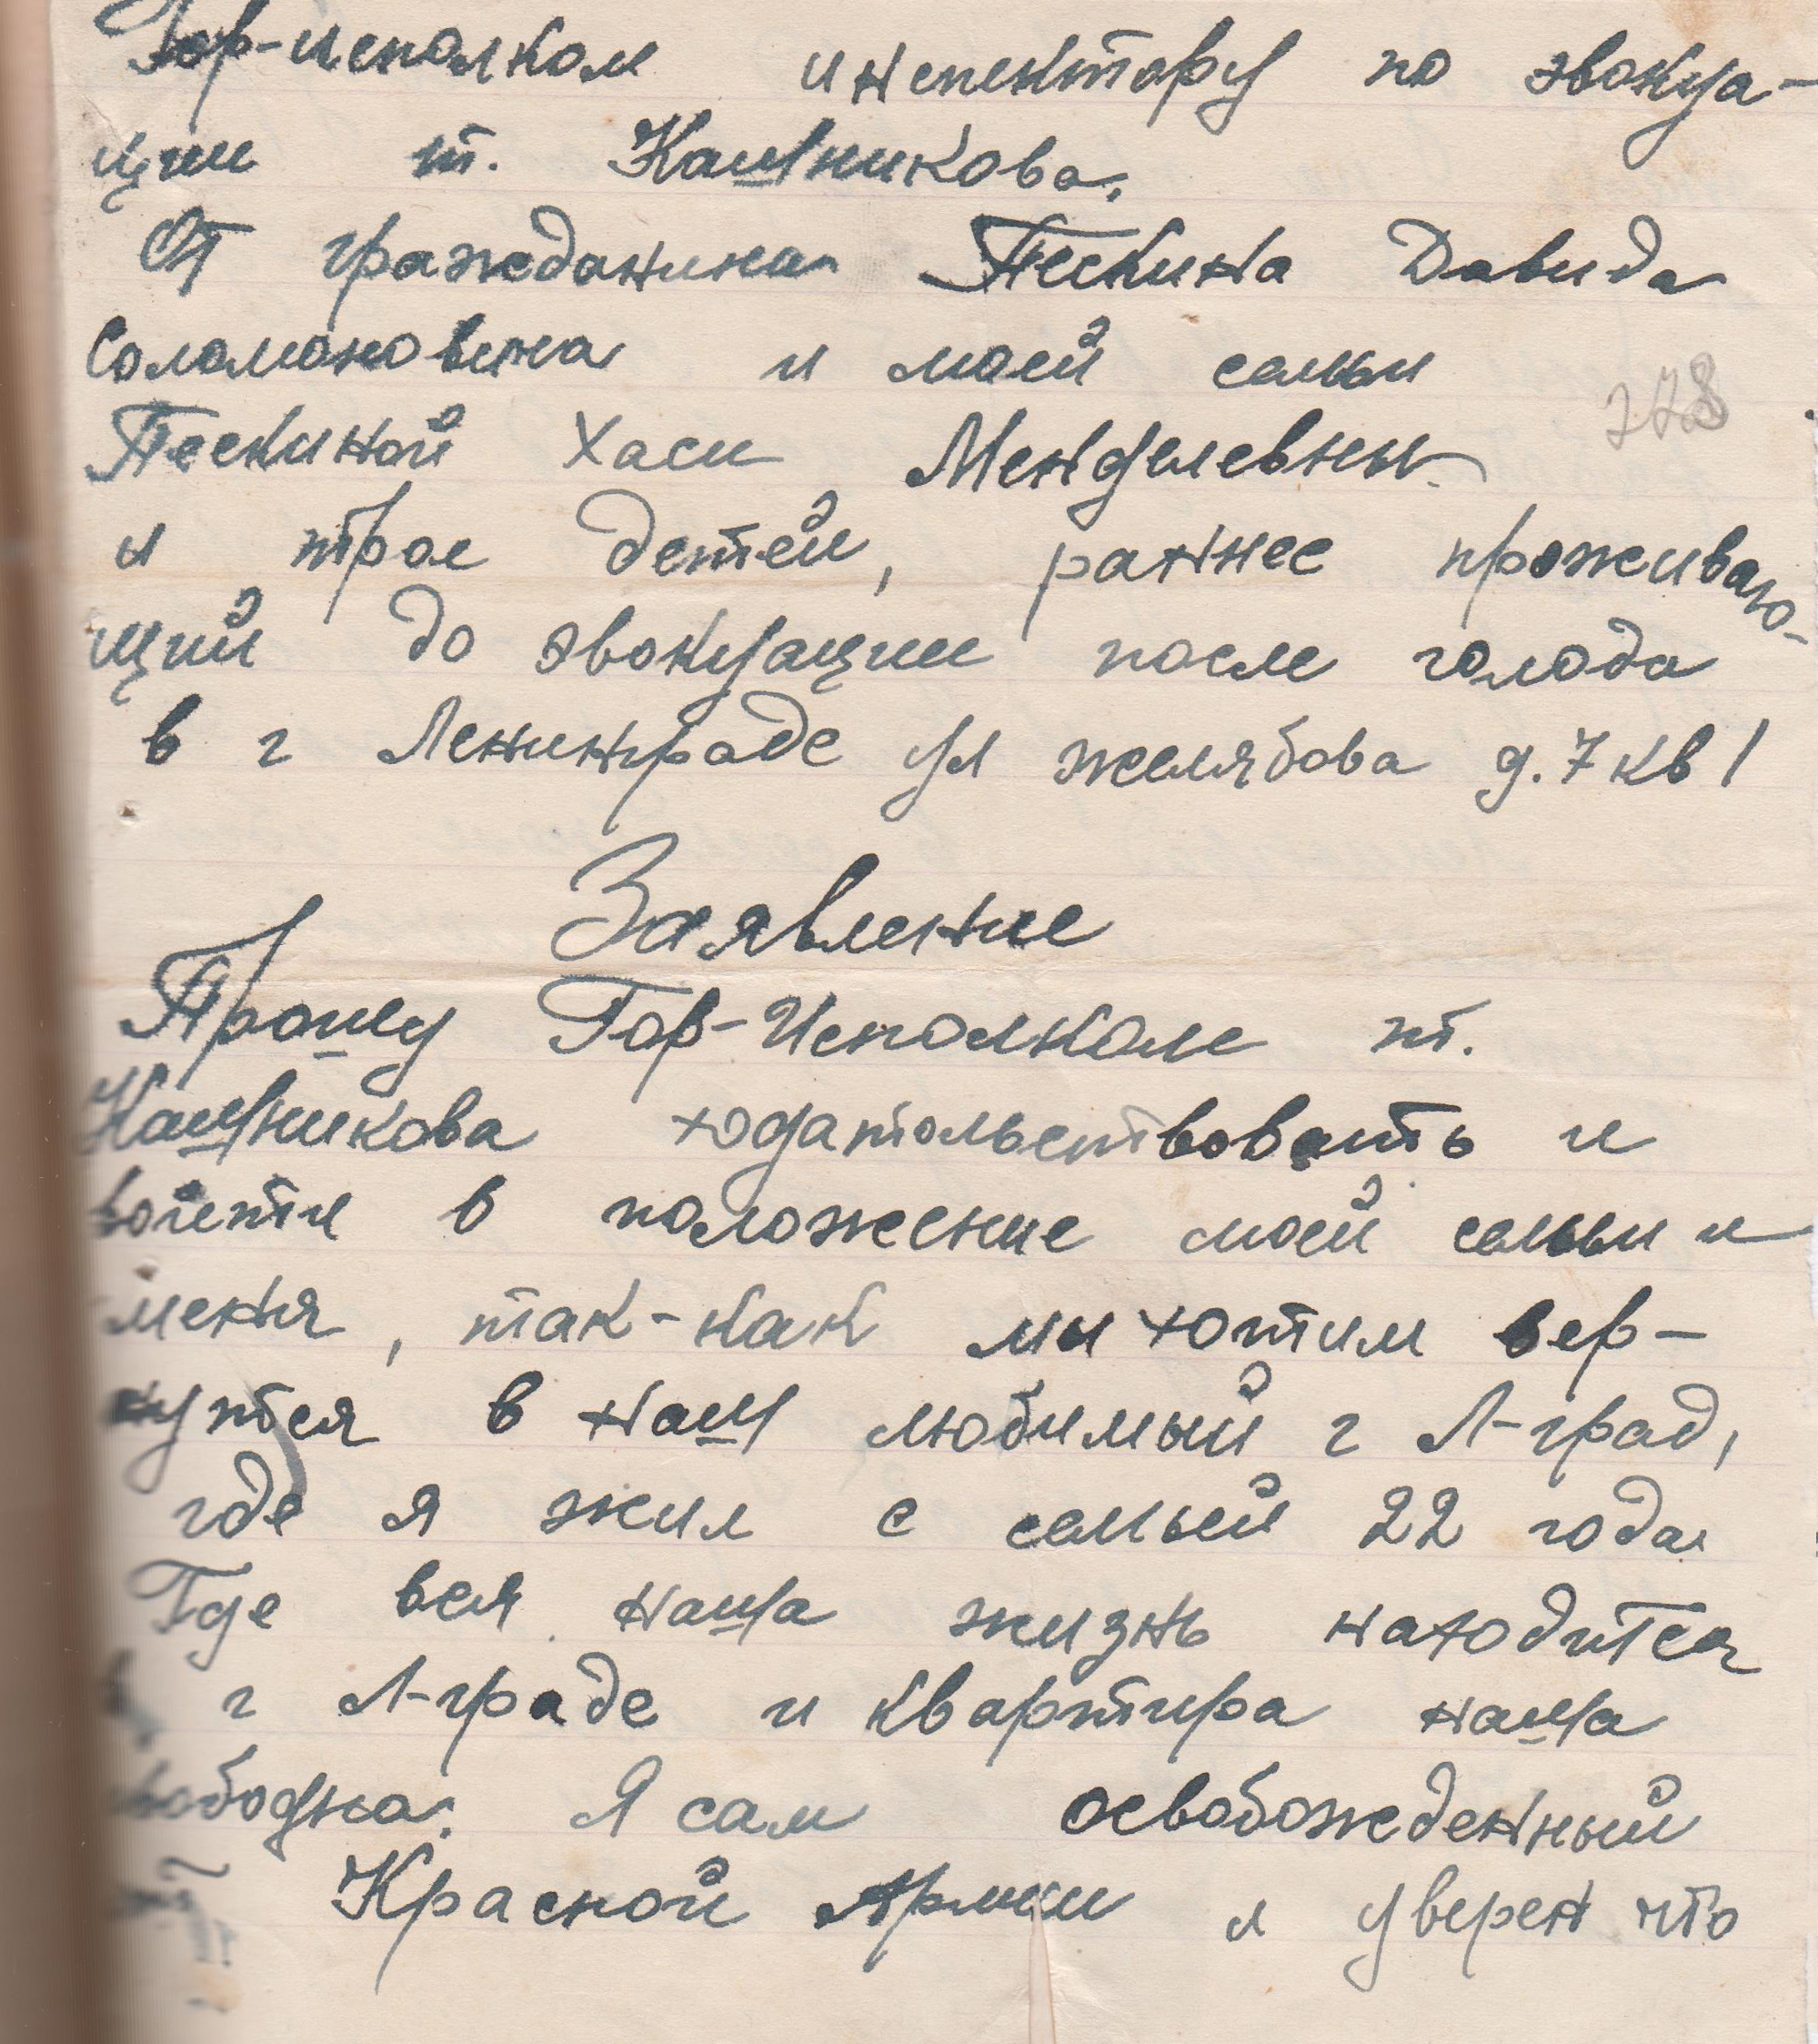 Гор-исполком инспектору по эвокуа-
ции т. Кашникова.
От гражданина Пескина Давида
Соломоновича и моей семьи
Пескиной Хаси Менделевны
и трое детей, раннее проживаю-
щий до эвокуации после голода
в г Ленинграде ул желябова д.7 кв 1
Заявление
Прошу Гор-Исполком т.
Кашникова ходатольствовать и
войсти в положение моей семьи и
меня, так-как мы хотим вер-
нутся в наш любимый г Л-град,
где я жил с семьей 22 года
Где вся наша жизнь находится
г Л-граде и квартира наша
свободна. Я сам освобожденный
Красной Армии и уверен что